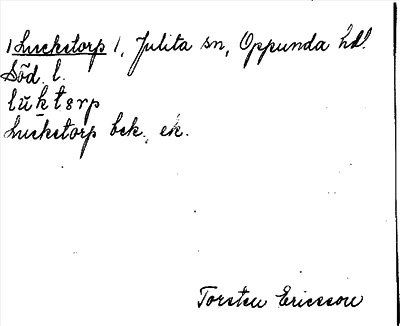 /Luckstorp/, Julita sn, Oppunda hd.
Söd. l.
lŭktərp
Luckstorp bek., ek.
Torsten Ericsson